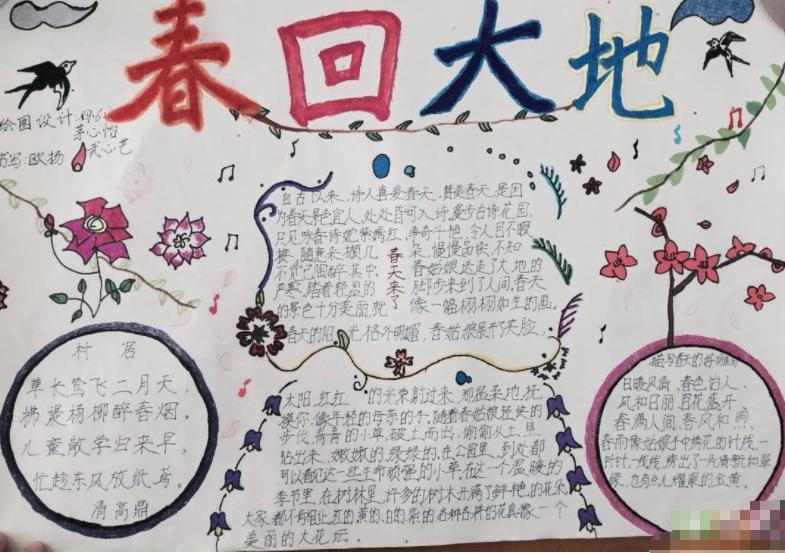 春回大地
绘图设计:四·6
茅心怡
书写:欧扬 武心艺
自古以来,诗人喜爱春天,赞美春天,是因
为春天景色宜人,处处皆可入诗,漫步古诗花园,
只见咏春诗姹紫嫣红,争奇斗艳,令人目不暇
接,随意采撷几朵,慢慢品读,不知
不觉已陶醉其中,春姑娘达走了大地的
严寒,踏着轻盈的脚步来到了人间,春天
的景色十分美丽,就像一幅栩栩如生的画。
春天的阳光,格外明媚,春姑娘展开笑脸,
春天来了
太阳,红红的光束射过来,那温柔地抚
摸你,像年轻的母亲的手。随着春姑娘轻快的
步伐,青青的小草,破土而出,偷偷从土里
钻出来,嫩嫩的,绿绿的,在公园里,到处都
可以看见这一些生命顽强的小草。在这一个温暖的
季节里,在树林里,许多的树木开满了鲜艳的花朵
大家都不肯相让,红的,黄的,白的,紫的各种各样的花真像一个
美丽的大花坛。
村居
草长莺飞二月天,
拂堤杨柳醉春烟。
儿童散学归来早,
忙趁东风放纸鸢。
清高鼎
描写春天的好词
日暖风清,春色怡人,
风和日丽,百花盛开
春满人间,春风和煦,
春雨像姑娘手中绣花的针线,一
针针,一线线,绣出了一片清新和翠
绿,也有点儿耀眼的金黄。